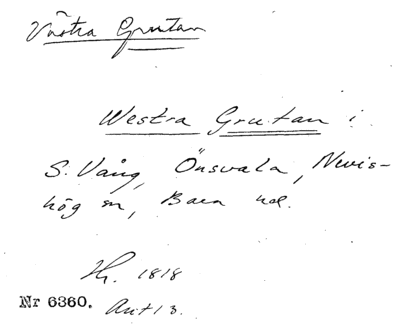 Västra Grutan
Westra Grutan i
S. Vång, Önsvala, Nevis-
hög sn, Bara hd.
Hr. 1818
Nr 6360. Akt 13.